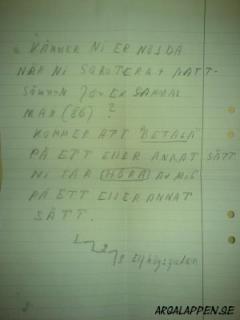 KÄNNER NI ER NÖJDA
NÄR NI SABOTERAT NATT-
SÖMNEN FÖR ER SAMBAL
MAX (ÖG) ?
KOMMER ATT "BETALA"
PÅ ETT ELLER ANNAT SÄTT
NI FÅR HÖRA AV MIG
PÅ ETT ELLER ANNAT
SÄTT.
ARGALAPPEN.SE